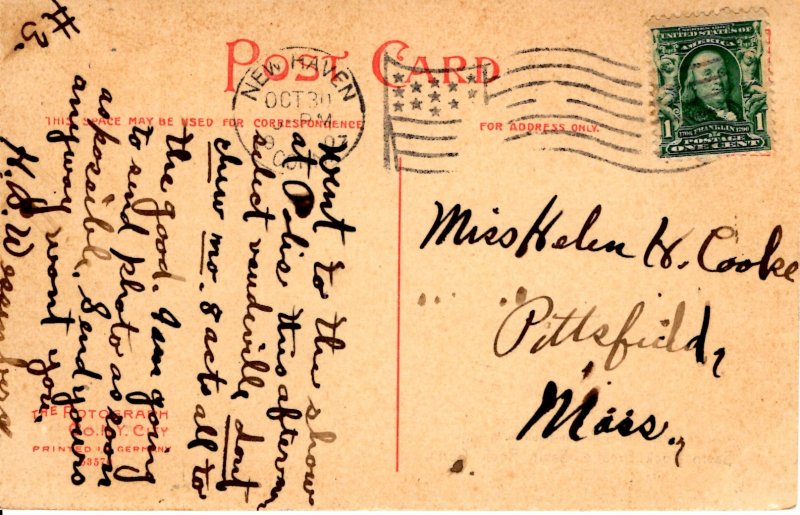 # 3.
POST CARD
NEW HAVEN
OCT 30
PM
THIS SPACE MAY BE USED FOR CORRESPONDENCE
FOR ADDRESS ONLY.
UNITED STATES OF AMERICA
1 1706 FRANKLIN 1790 1
POSTAGE
ONE CENT
Went to the show
at Polis this afternoon
select vaudeville, dont
chew mo. 8 acts all to
the good. I am going
to send photo as soon
as possible. Send yours
anyway wont you.
H. S. W
Miss Helen H. Cooke
Pittsfield,
Mass.,
THE ROTOGRAPH
CO. N.Y. CITY
PRINTED IN GERMANY